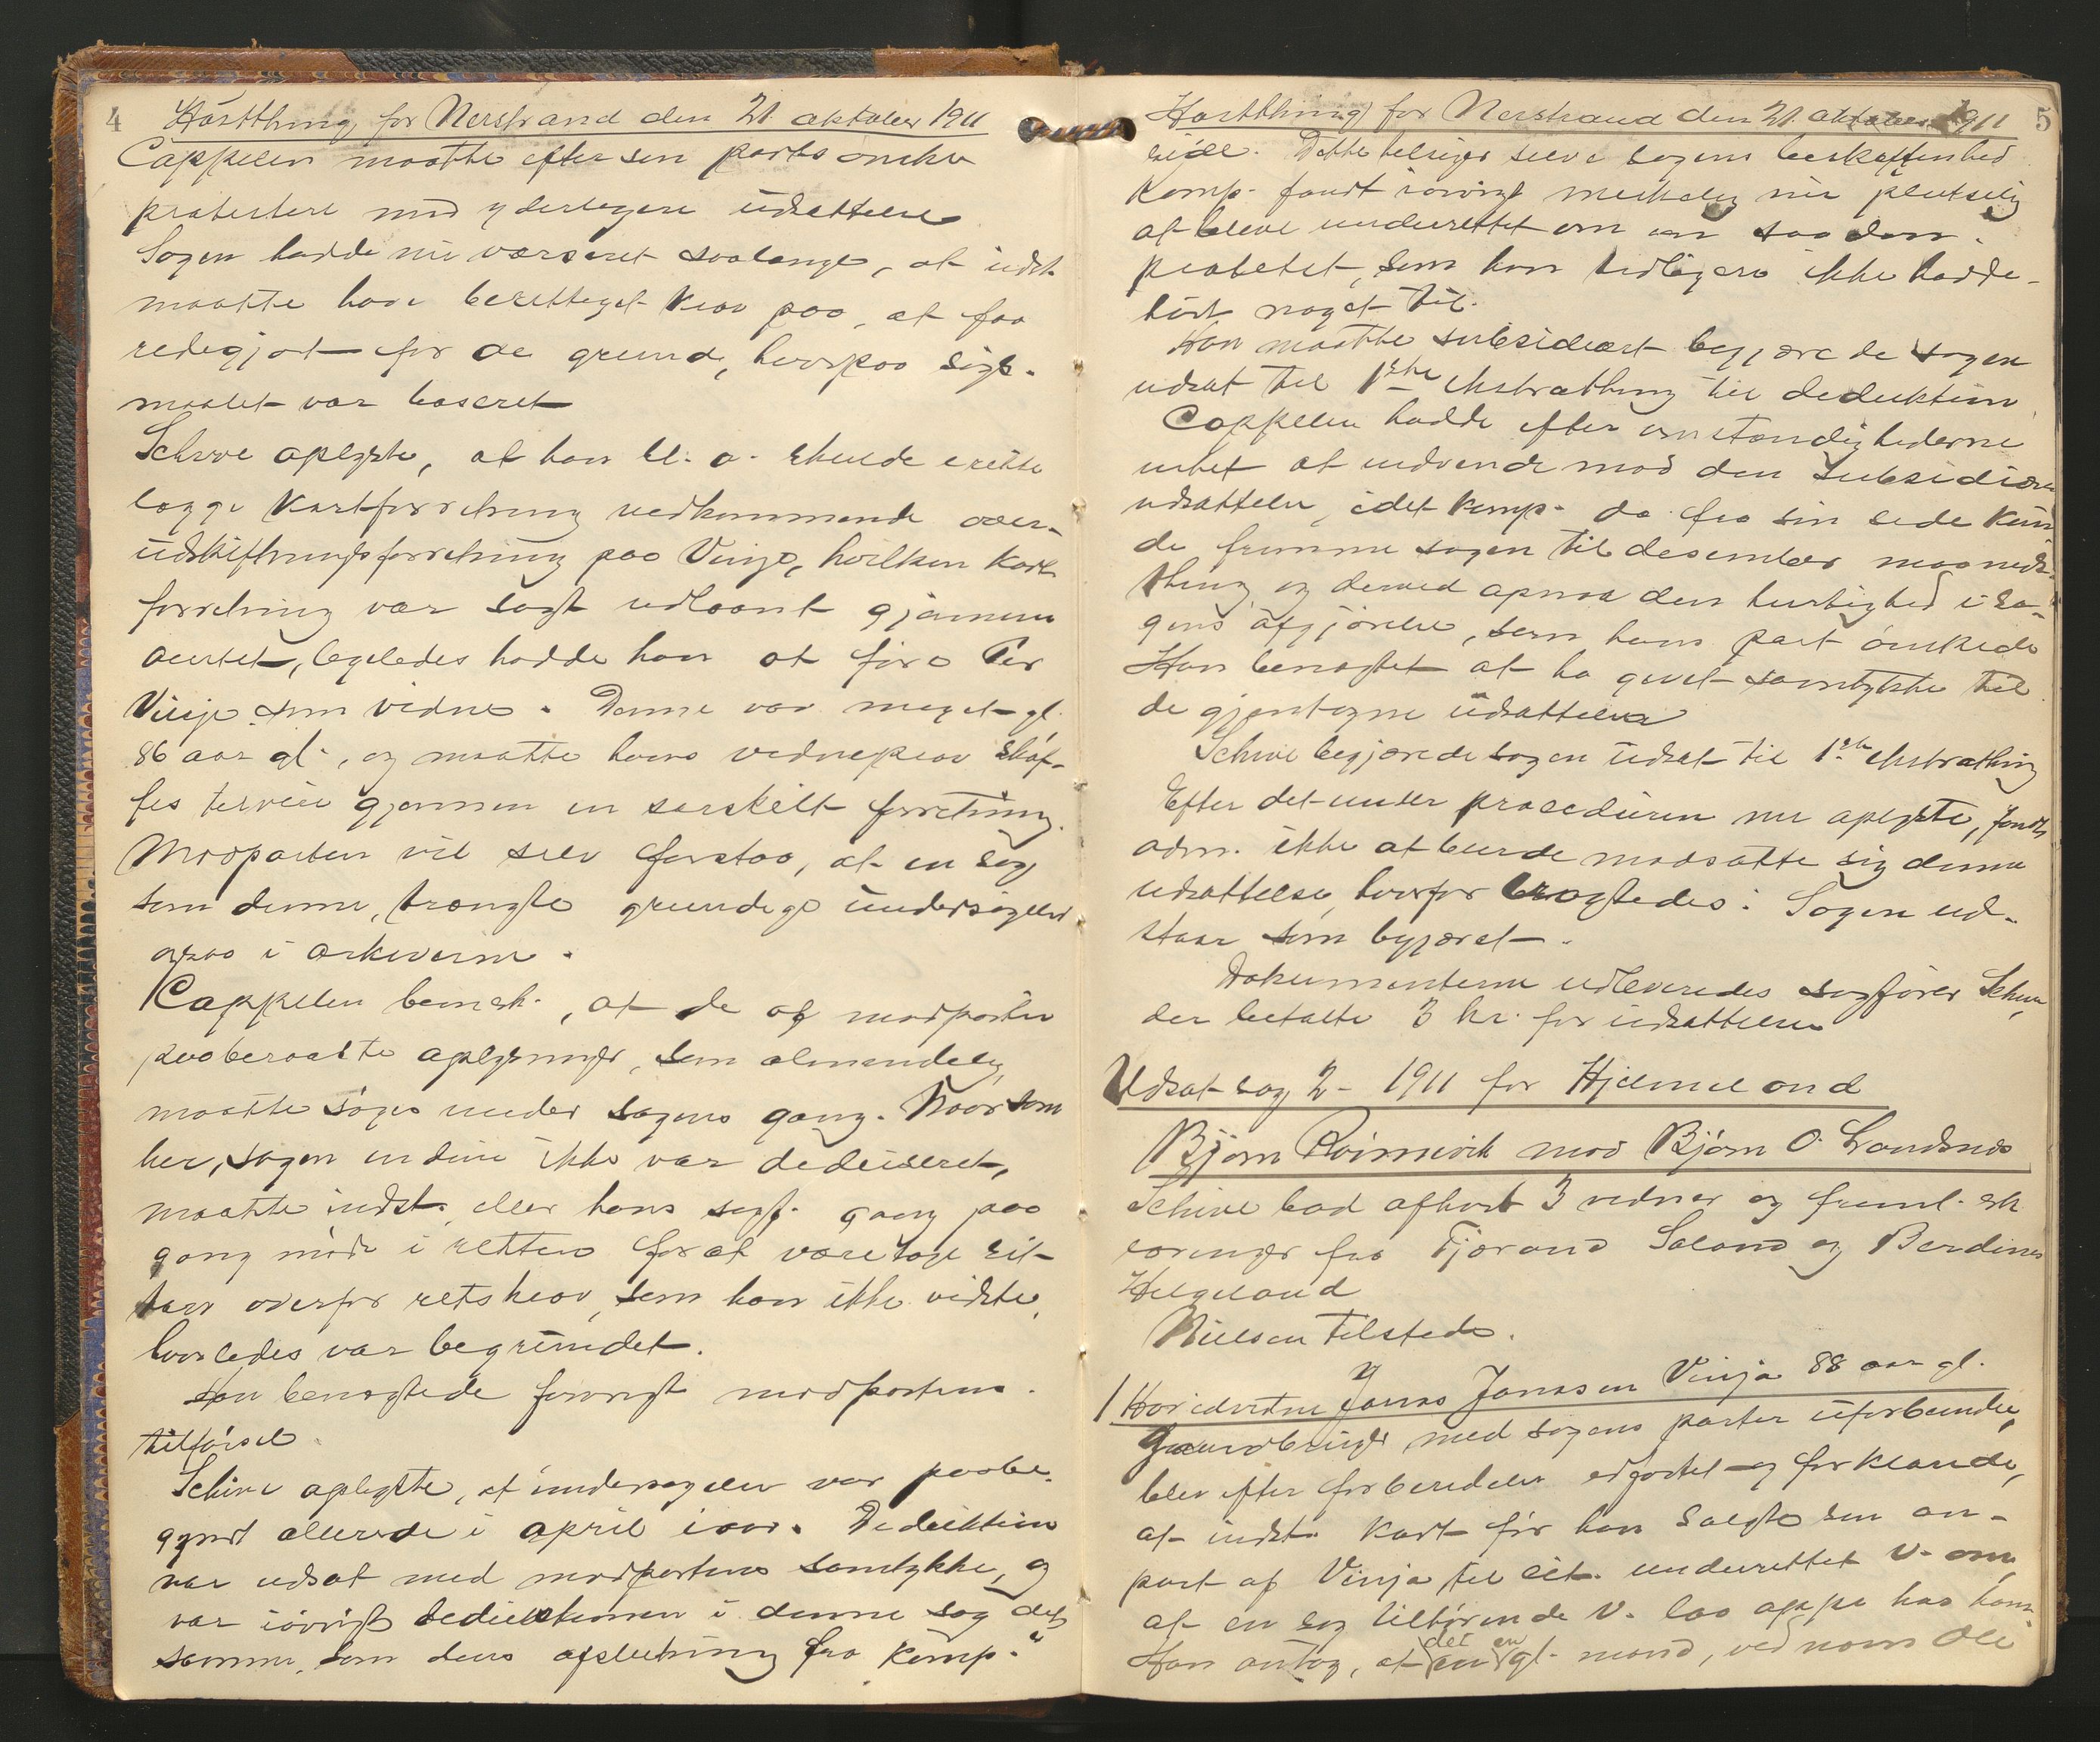 4
Høstthing for Nerstrand den 21 oktober 1911
Cappelen maatte efter sin parts ønske
protestere mod yderligere udsættelse
Sagen hadde nu værseret saalænge, at indst.
maatte have berettiget krav paa, at faa
redegjort for de grunde, hvorpaa søgs-
maalet var baseret
Schive oplyste, at han bl. a. skulde
lægge kartforretning vedkommende over-
udskiftningsforretning paa Vinje, hvilken kart
forretning var søgt udlaant gjennem
ligeledes hadde han at føre Per
Vinje som vidne. Denne var meget gl.
86 aar gl., og maatte hans vidneprov skaf-
fes gjennem en særskilt forretning.
Modparten vil selv forstaa, at en sag
som denne, trængte grundige undersøgelser
ogsaa i arkiverne.
Cappelen bemerk., at de af modparten
paaberaabte oplysninger, som almindelig
maatte søges under sagens gang. Naar som
her, sagen endnu ikke var deduseret,
maatte indst. eller hans sagf. gang paa
gang møde i retten for at varetage sit
tarv overfor retskrav, som han ikke vidste,
hvorledes var begrundet.
Han benægtede forøvrigt modpartens
tilførsel.
Schive oplyste, at undersøgelsen var paabe-
gyndt allerede i april iaar. Deduktion
var udsat med modpartens samtykke, og
var iøvrigt deduktionen i denne sag det
samme, som dens afslutning fra komp.'s
Høstthing for Nerstrand den 21. oktober 1911
5
side. Dette tilsiger selve sagens beskaffenhed
Komp. fandt iøvrigt merkelig nu plutselig
at bleve underrettet om en saadan
som han tidligere ikke hadde
hørt noget til.
Han maatte subsidiært begjærede sagen
udsat til 1ste ekstrathing til deduktion.
Cappelen hadde efter omstændighederne
intet at indvende mod den subsidiære
udsættelse, idet komp. da fra sin side kun-
de fremme sagen til desember maaneds-
thing og derved opnaa den hurtighed i sa-
gens afgjørelse, som hans part ønskede
Han benægtet at ha givet samtykke til
de gjentagne udsættelser
Schive begjærede sagen udsat til 1ste ekstrathing
Efter det under proceduren nu oplyste, fandt
adm. ikke at burde modsætte sig denne
udsættelse, hvorfor eragtedes: Sagen ud-
staar som begjæret.
Dokumenterne udleveredes sagfører Schive,
der betalte 3 kr. for udsættelsen
Udsat sag 2 - 1911 for Hjelmeland
Bjørn Røinevik mod Bjørn O. Landsnes
Schive bad afhørt 3 vidner og freml. erk
læringer fra Tjerand Saland og Berdines
Helgeland
Nielsen tilstede.
1 Hovedvidne Jonas Jonassen Vinja 88 aar gl.
Gaardbruger, med sagens parter uforbunden,
blev efter forberedelse edfæstet og forklarede,
at indst. kort før han solgte sin an-
part af Vinja til cit. underrettet v. om,
at en sag tilhørende v. laa oppe hos ham.
Han antog, at det en gl. mand, ved navn Ole